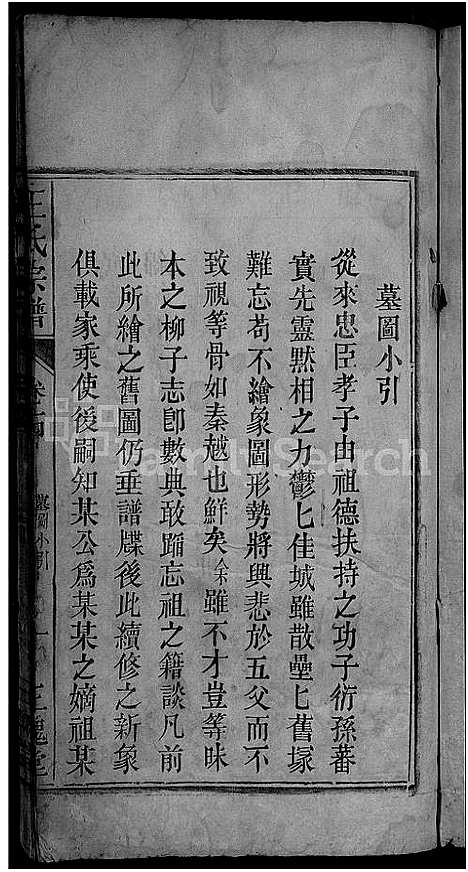 墓圖小引
從來忠臣孝子由祖德扶持之功子衍孫蕃
實先靈默相之力鬱匕佳城雖散壘匕舊塚
難忘苟不繪象圖形勢將興悲於五父而不
致視等骨如秦越也鮮矣余雖不才豈等昧
本之柳子志卽數典敢蹈忘祖之籍談凡前
此所繪之舊圖仍垂譜牒後此續修之新象
俱載家乘使後嗣知某公爲某某之嫡祖某
王氏宗譜
墓圖小引
一
三槐堂
FamilySearch